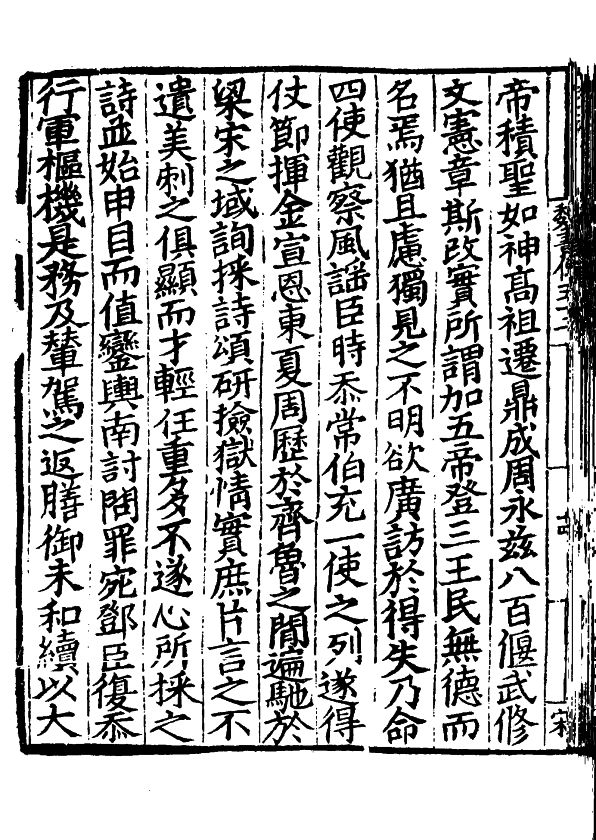 帝積聖如神高祖遷鼎成周永兹八百偃武修
文憲章斯改實所謂加五帝登三王民無德而
名焉猶且慮獨見之不明欲廣訪於得失乃命
四使觀察風謡臣時忝常伯充一使之列遂得
仗節揮金宣恩東夏周歷於齊魯之間遍馳於
梁宋之域詢採詩頌研撿獄情實庶片言之不
遺美刺之俱顯而才輕任重多不遂心所採之
詩並始申目而值鑾輿南討問罪宛鄧臣復忝
行軍樞機是務及輦駕之返膳御未和續以大